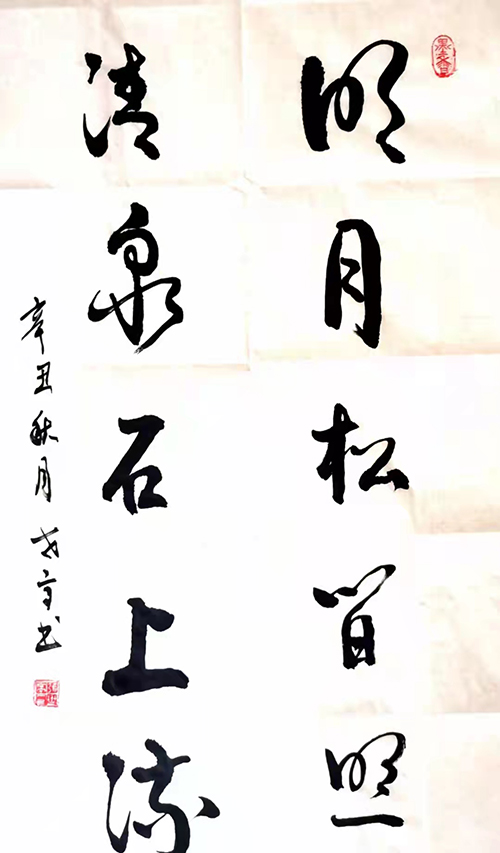 明月松间照
清泉石上流
辛丑秋月
书